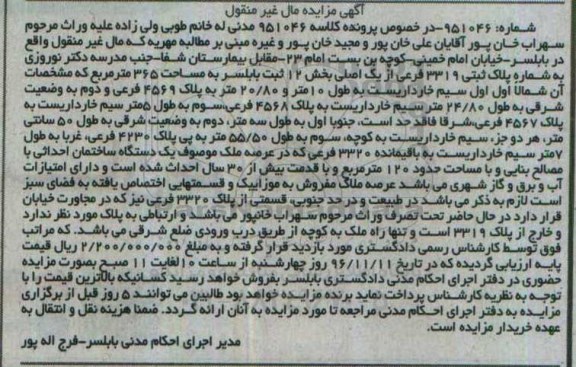 آگهی مزایده مال غیر منقول
شماره: ۹۵۱۰۴۶-در خصوص پرونده کلاسه ۹۵۱۰۴۶ مدنی له خانم طوبی ولی زاده علیه وراث مرحوم
سهراب خان پور آقایان علی خان پور و مجید خان پور و غیره مبنی بر مطالبه مهریه که مال غیر منقول واقع
در بابلسر-خیابان امام خمینی-کوچه بن بست امام ۲۳-مقابل بیمارستان شفا-جنب مدرسه دکتر نوروزی
به شماره پلاک ثبتی ۳۳۱۹ فرعی از یک اصلی بخش ۱۲ ثبت بابلسر به مساحت ۳۶۵ مترمربع که مشخصات
آن شمالا اول اول سیم خارداریست به طول ۱۰متر و ۲۰/۸۰ متر به پلاک ۴۵۶۹ فرعی و دوم به وضعیت
شرقی به طول ۲۴/۸۰ متر سیم خارداریست به پلاک ۴۵۶۸ فرعی،سوم به طول ۵متر سیم خارداریست به
پلاک ۴۵۶۷ فرعی،شرقا فاقد حد است، جنوبا اول به طول سه متر، دوم به وضعیت شرقی به طول ۵۰ سانتی
متر، هر دو جز، سیم خارداریست به کوچه، سوم به طول ۵۵/۵۰ متر به پی پلاک ۴۲۳۰ فرعی، غربا به طول
۷متر سیم خارداریست به باقیمانده ۳۳۲۰ فرعی که در عرصه ملک موصوف یک دستگاه ساختمان احداثی با
مصالح بنایی و با مساحت حدود ۱۲۰ مترمربع و با قدمت بیش از ۳۰ سال احداث شده است و دارای امتیازات
آب و برق و گاز شهری می باشد عرصه ملاک مفروش به موزاییک و قسمتهایی اختصاص یافته به فضای سبز
است لازم به ذکر می باشد در طبیعت و در حد جنوبی، قسمتی از پلاک ۳۳۲۰ فرعی نیز که در مجاورت خیابان
قرار دارد در حال حاضر تحت تصرف وراث مرحوم سهراب خانپور می باشد و ارتباطی به پلاک مورد نظر ندارد
و خارج از پلاک ۳۳۱۹ است و تنها راه ملک به کوچه از طریق درب ورودی ضلع شرقی می باشد. که مراتب
فوق توسط کارشناس رسمی دادگستری مورد بازدید قرار گرفته و به مبلغ ۲/۲۰۰/۰۰۰/۰۰۰ ریال قیمت
پایه ارزیابی گردیده که در تاریخ ۹۶/۱۱/۱۱ روز چهارشنبه از ساعت ۱۰ لغایت ۱۱ صبح بصورت مزایده
حضوری در دفتر اجرای احکام مدنی دادگستری بابلسر بفروش خواهد رسید کسانیکه بالاترین قیمت را با
توجه به نظریه کارشناس پرداخت نماید برنده مزایده خواهد بود طالبین می توانند ۵ روز قبل از برگزاری
مزایده به دفتر اجرای احکام مدنی مراجعه تا مورد مزایده به آنان ارائه گردد. ضمنا هزینه نقل و انتقال به
عهده خریدار مزایده است.
مدیر اجرای احکام مدنی بابلسر-فرج اله پور